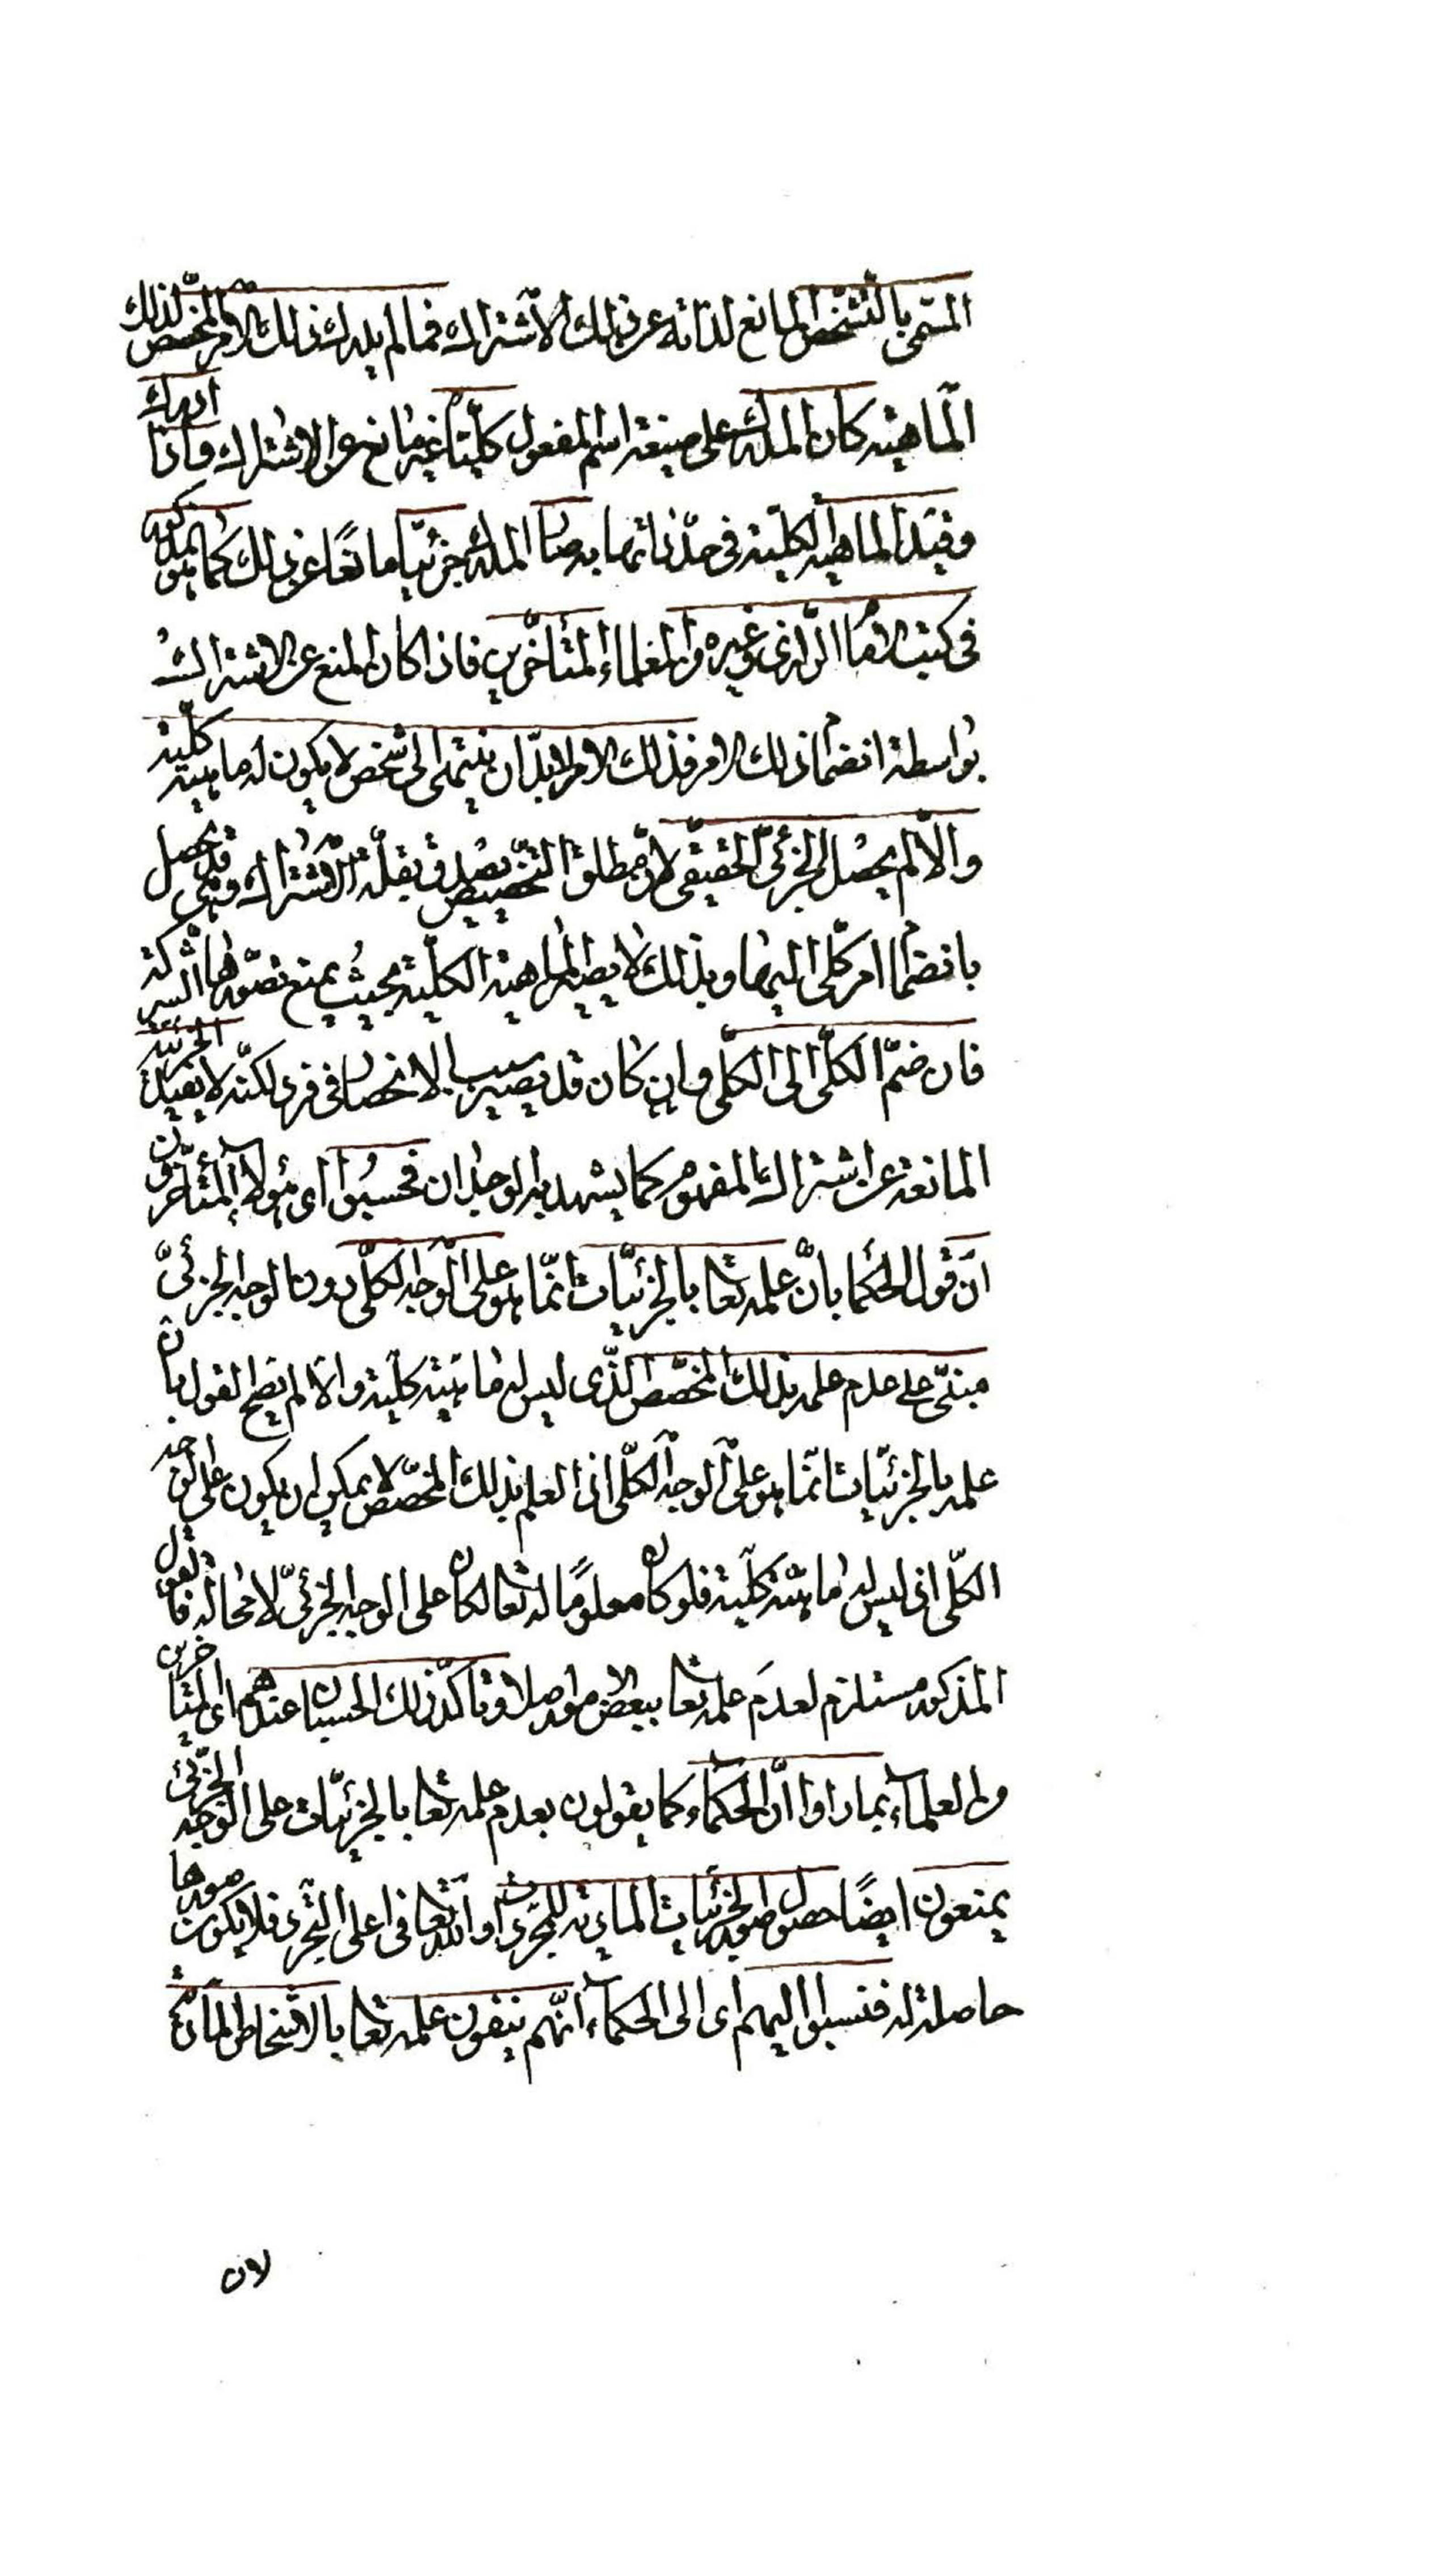 المسمّى بالتشخّص المانع لذاته عن ذلك الاشتراك فما لم يدرك ذلك الامر المخصّص لذلك
الماهيّة كان المدرك على صيغة اسم المفعول كلّيّا غير مانع عن الاشتراك واذا ادرك
وقيّد الماهيّة الكلّيّة في حدّ ذاتها به صار المدرك جزئيّا مانعًا عن ذلك كما هو مذكور
في كتب الامام الرازي وغيره من العلماء المتأخّرين فاذا كان المنع عن الاشتراك
بواسطة انضمام ذلك الامر فذلك الامر لابدّ ان ينتهى الى شخص لا يكون له ماهيّة كلّيّة
والّا لم يحصل الجزئيّ الحقيقي لانّ مطلق التخصيص يصدق بقلّة الاشتراك وهي قد يحصل
بانضمام امر كلّى اليها وبذلك لا يصير الماهية الكلّية بحيث يمنع تصوّرها الشركة
فان ضمّ الكلّى الى الكلّى وان كان قد يصير سببا لانحصار في فرد لكنّه لا يفيد الجزئيّة
المانعة عن اشتراك المفهوم كما يشهد به الوجدان فحسبوا اى هؤلاء المتأخّرون
انّ قول الحكما بانّ علمه تعا بالجزئيّات انّما هو على الوجه الكلّى دون الوجه الجزئيّ
مبنىّ على عدم علمه بذلك المخصّص الذّى ليس له ماهيّة كلّية والّا لم يصحّ القول بان
علمه بالجزئيّات انّما هو على الوجه الكلّى اذ العلم بذلك المخصّص لا يمكن ان يكون على الوجه
الكلّى اذ ليس له ماهيّة كلّية فلو كان معلومًا له تعا لكان على الوجه الجزئيّ لا محالة فالقول
المذكور مستلزم لعدم علمه تعا ببعض الامور اصلا وتأكّد ذلك الحسبان عندهم اى المتأخرين
من العلماء بما راوا انّ الحكماء كما يقولون بعدم علمه تعا بالجزئيّات على الوجه الجزئي
يمنعون ايضًا حصول صور الجزئيّات المادّية للمجرّد والله تعا في اعلى التجرد فلا يكون صورها
حاصلة له فنسبوا اليهم اى الى الحكماء انّهم ينفون علمه تعا بالاشخاص المادّيّة
لان